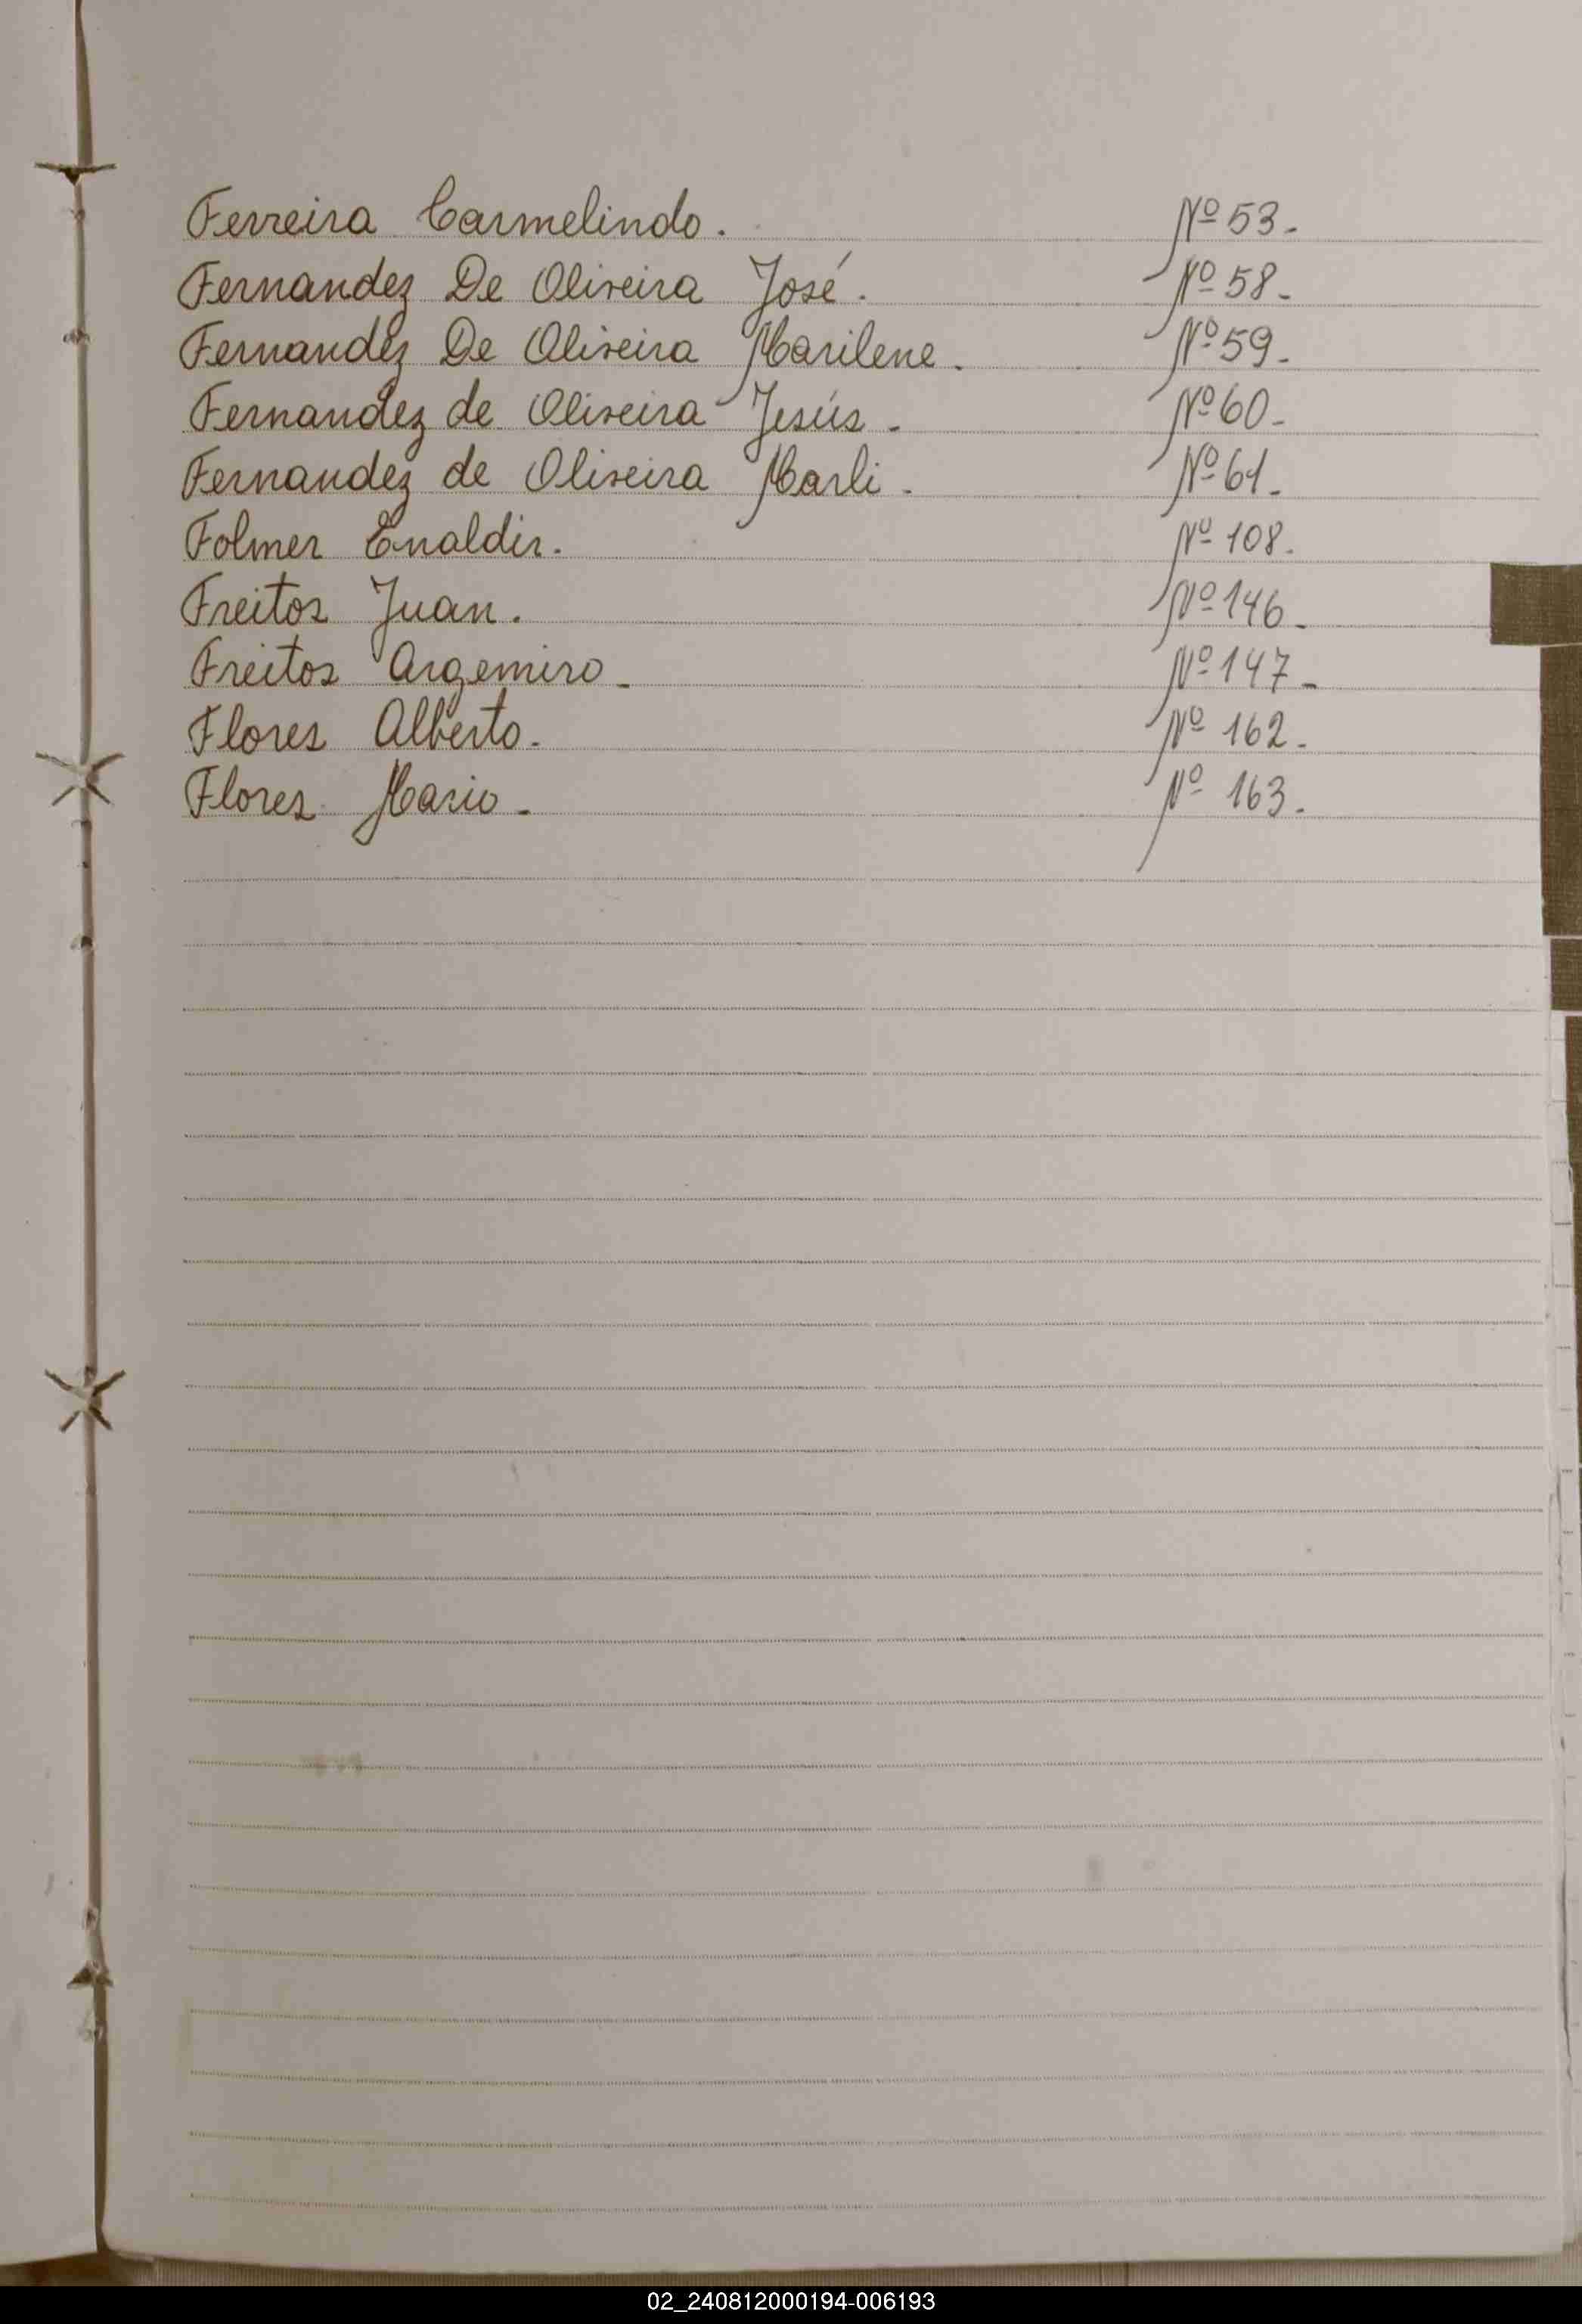 Ferreira Carmelindo. Nº 53.
Fernandez De Oliveira José. Nº 58.
Fernandez De Oliveira Marilene. Nº 59.
Fernandez de Oliveira Jesús. Nº 60.
Fernandez de Oliveira Marli. Nº 61.
Folmer Enaldir. Nº 108.
Freitos Juan. Nº 146.
Freitos Argemiro. Nº 147.
Flores Alberto. Nº 162.
Flores Mario. Nº 163.
02_240812000194-006193